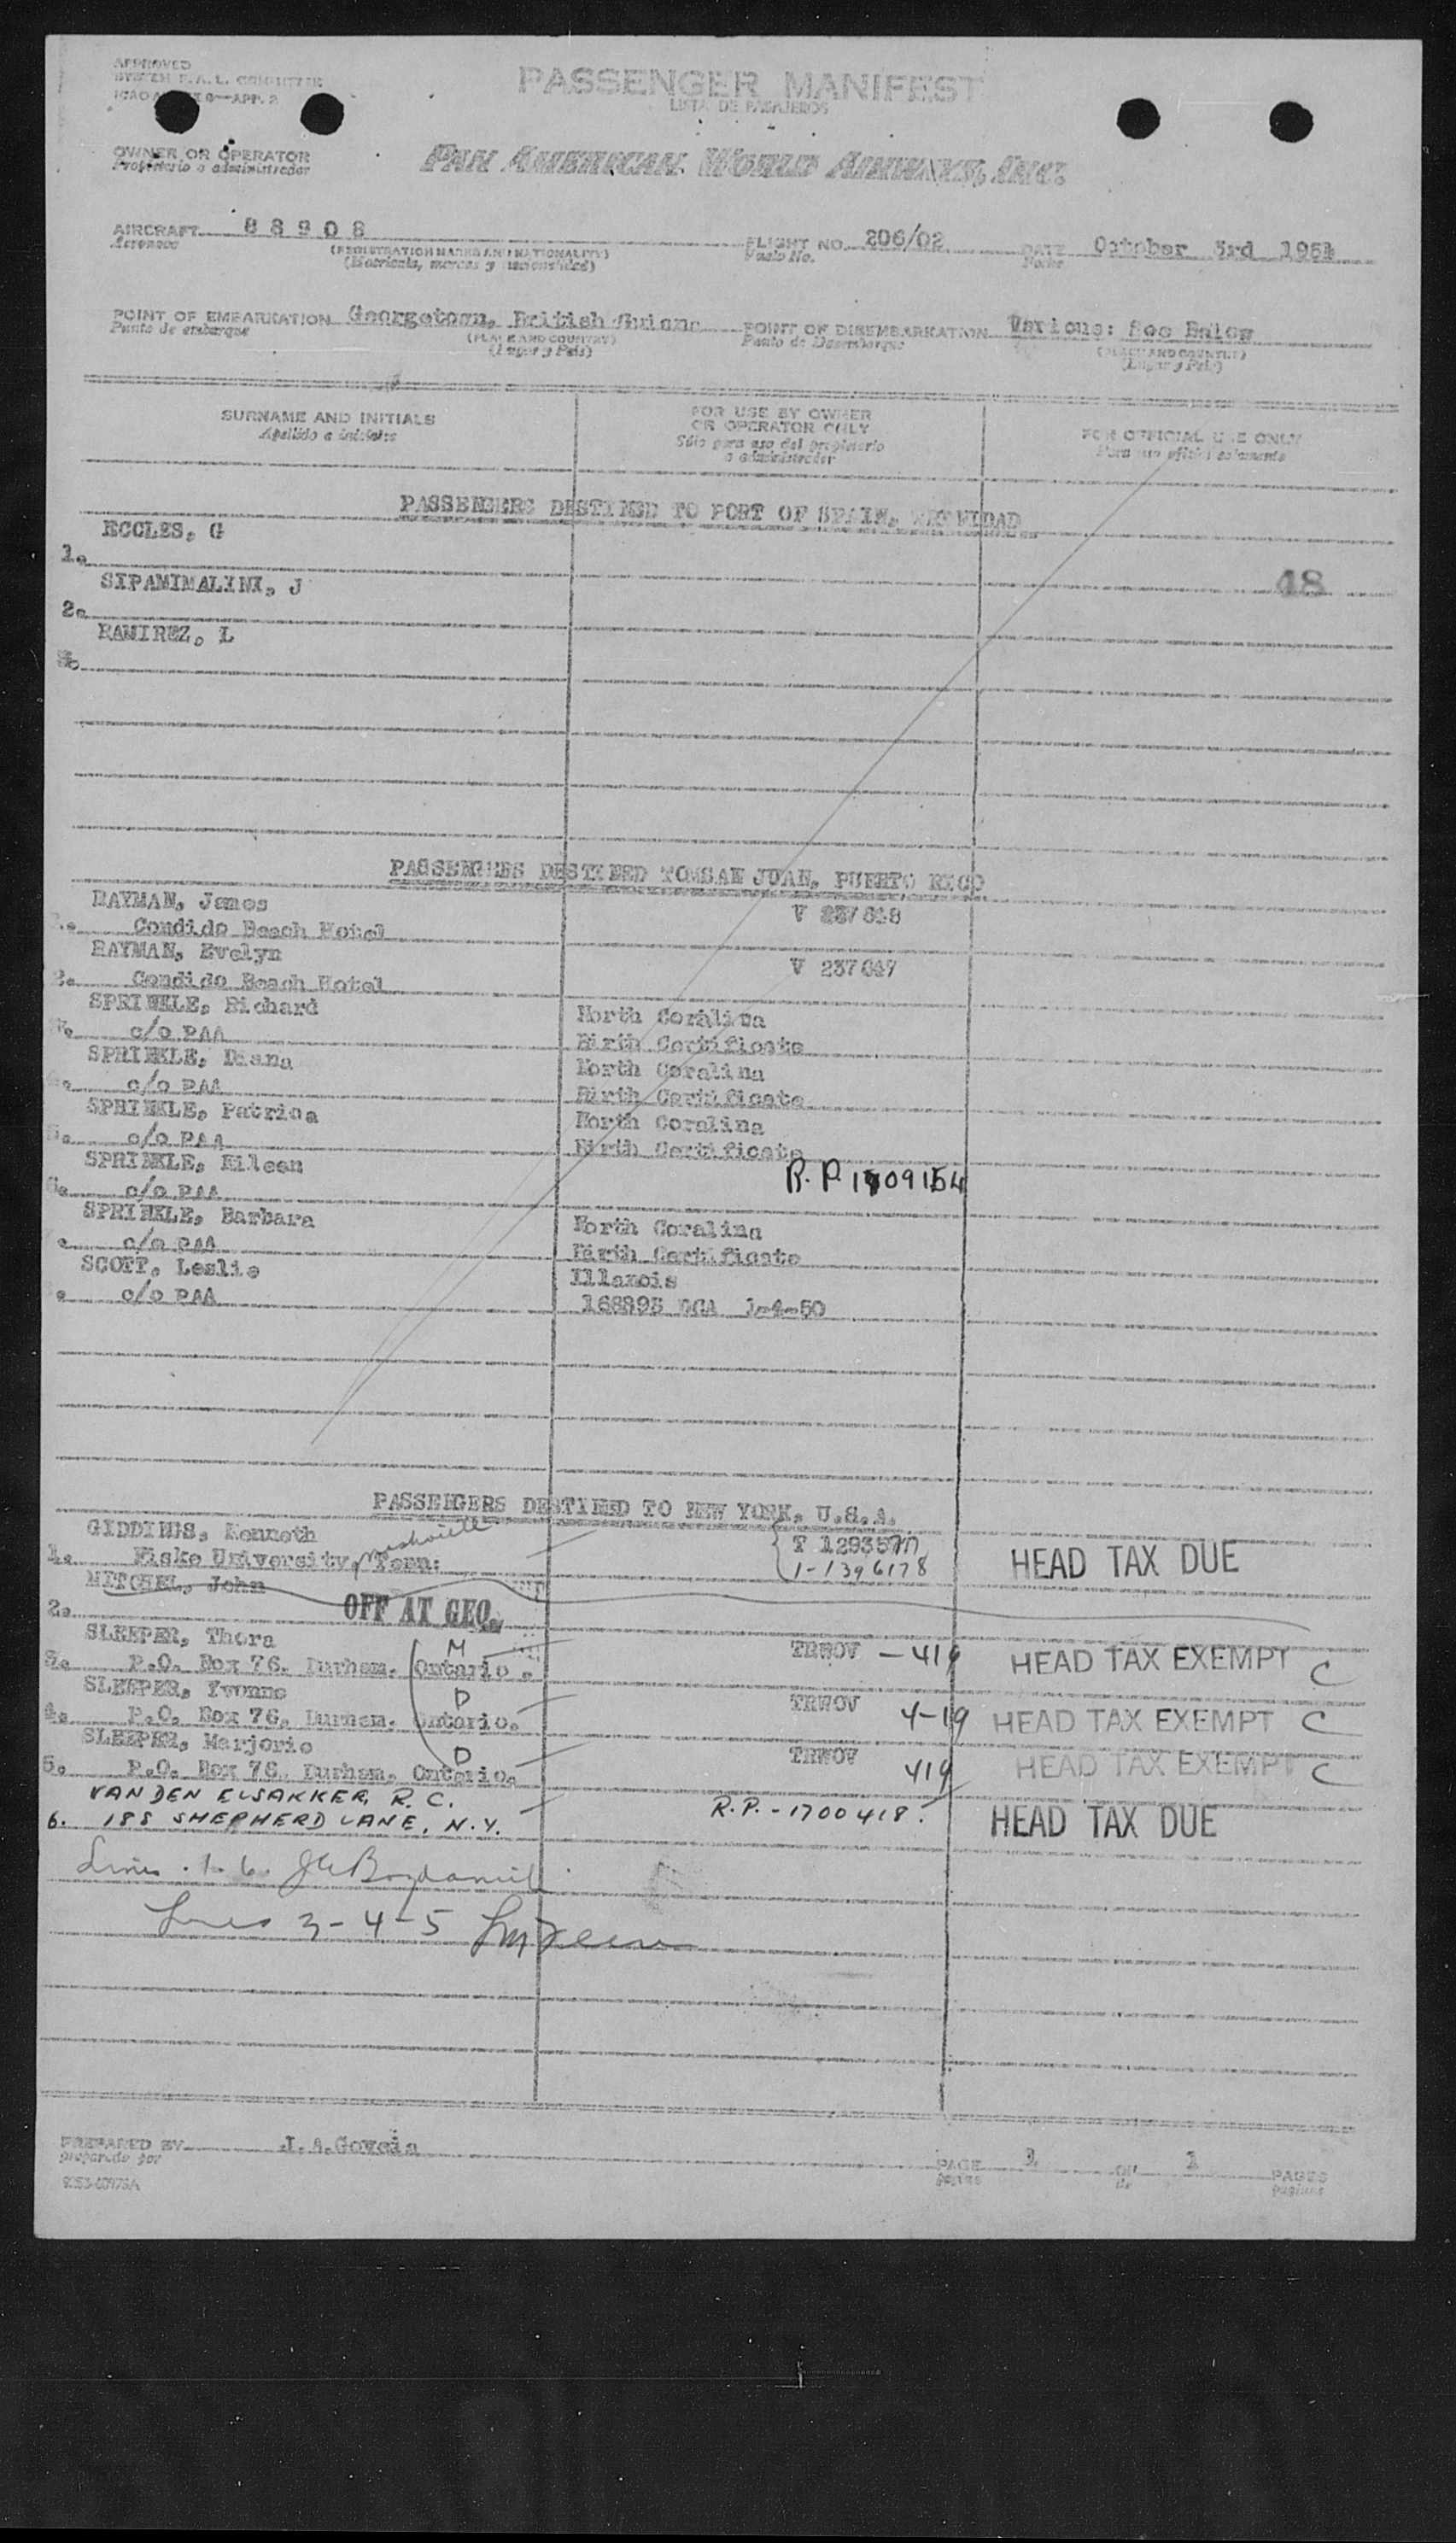 APPROVED
SYSTEM F.A.L. COMMITTEE
ICAO 9—APP. 2
PASSENGER MANIFEST
LISTA DE PASAJEROS
OWNER OR OPERATOR
Propietario o administrador
PAN AMERICAN WORLD AIRWAYS, INC.
AIRCRAFT 88908
Aeronave
(REGISTRATION MARKS AND NATIONALITY)
(Matricula, marcas y nacionalidad)
FLIGHT NO. 206/02
Vuelo No.
DATE October 3rd 1954
Fecha
POINT OF EMBARKATION Georgetown, British Guiana
Punto de embarque
(PLACE AND COUNTRY)
(Lugar y Pais)
POINT OF DISEMBARKATION Various: See Below
Punto de Desembarque
(PLACE AND COUNTRY)
(Lugar y Pais)
SURNAME AND INITIALS
Apellido e iniciales
FOR USE BY OWNER
OR OPERATOR ONLY
Sólo para uso del propietario
o administrador
FOR OFFICIAL USE ONLY
Para uso oficial solamente
PASSENGERS DESTINED TO PORT OF SPAIN, TRINIDAD
ECCLES, G
1.
48
SIPAMIMALINI, J
2.
RAMIREZ, L
3.
PASSENGERS DESTINED TOMSAN JUAN, PUERTO RICO
RAYMAN, James V 237648
1. Condido Beach Hotel
RAYMAN, Evelyn V 237647
2. Condido Beach Hotel
SPRINKLE, Richard North Coralina
3. c/o PAA Birth Certificate
SPRINKLE, Diana North Coralina
4. c/o PAA Birth Certificate
SPRINKLE, Patrica North Coralina
5. c/o PAA Birth Certificate
SPRINKLE, Eileen R.P. 1709154
6. c/o PAA
SPRINKLE, Barbara North Coralina
c/o PAA Birth Certificate
SCOTT, Leslie Illanois
c/o PAA 168893 DCA 1-4-50
PASSENGERS DESTINED TO NEW YORK, U.S.A.
GIDDINGS, Kenneth T 129357
1. Fiske University, Nashville Tenn: 1-1396178 HEAD TAX DUE
MITCHEL, John
2. OFF AT GEO.
SLEEPER, Thora M TRWOV - 419 HEAD TAX EXEMPT C
3. P.O. Box 76. Durham. Ontario.
SLEEPER, Yvonne D TRWOV 4-19 HEAD TAX EXEMPT C
4. P.O. Box 76. Durham. Ontario.
SLEEPER, Marjorie D TRWOV 419 HEAD TAX EXEMPT C
5. P.O. Box 76. Durham. Ontario.
VANDEN ELSAKKER, R. C. R.P. - 1700418. HEAD TAX DUE
6. 188 SHEPHERD LANE, N.Y.
Lines . 1. 6.
Lines 3-4-5
PREPARED BY J.A.Garcia
preparado por
PAGE 1 OF 1 PAGES
pagina de paginas